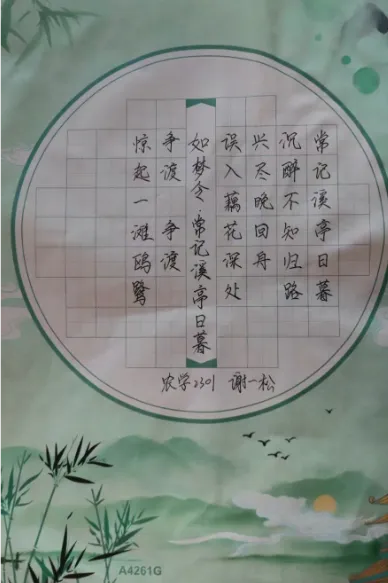 常记溪亭日暮
沉醉不知归路
兴尽晚回舟
误入藕花深处
如梦令 常记溪亭日暮
争渡 争渡
惊起一滩鸥鹭
农学2301 谢一松
A4261G